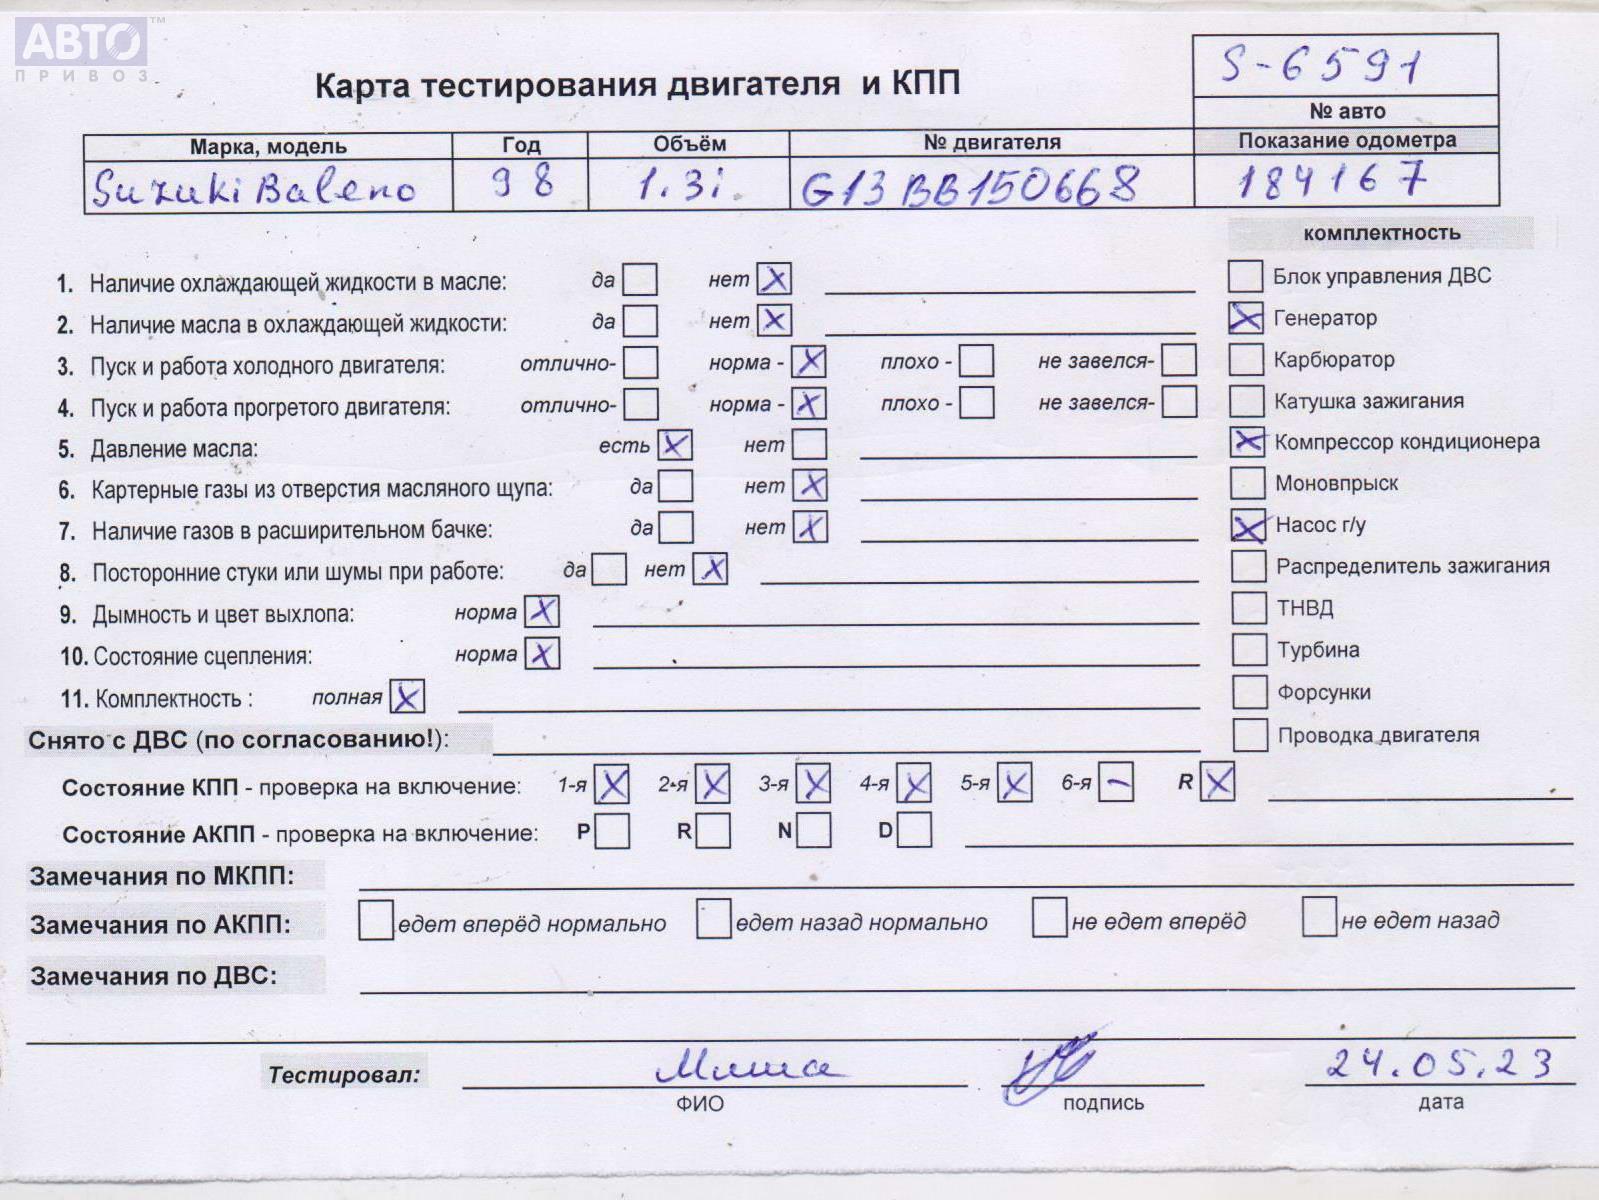 АВТО™
ПРИВОЗ
S-6591
Карта тестирования двигателя и КПП
№ авто
Марка, модель Год Объём № двигателя Показание одометра
Suzuki Baleno 98 1.3i. G13BB150668 184167
комплектность
1. Наличие охлаждающей жидкости в масле: да нет X
Блок управления ДВС
2. Наличие масла в охлаждающей жидкости: да нет X
X Генератор
3. Пуск и работа холодного двигателя: отлично- норма - X плохо - не завелся-
Карбюратор
4. Пуск и работа прогретого двигателя: отлично- норма - X плохо - не завелся-
Катушка зажигания
5. Давление масла: есть X нет
X Компрессор кондиционера
6. Картерные газы из отверстия масляного щупа: да нет X
Моновпрыск
7. Наличие газов в расширительном бачке: да нет X
X Насос г/у
8. Посторонние стуки или шумы при работе: да нет X
Распределитель зажигания
9. Дымность и цвет выхлопа: норма X
ТНВД
10. Состояние сцепления: норма X
Турбина
11. Комплектность : полная X
Форсунки
Снято с ДВС (по согласованию!):
Проводка двигателя
Состояние КПП - проверка на включение: 1-я X 2-я X 3-я X 4-я X 5-я X 6-я - R X
Состояние АКПП - проверка на включение: P R N D
Замечания по МКПП:
Замечания по АКПП: едет вперёд нормально едет назад нормально не едет вперёд не едет назад
Замечания по ДВС:
Тестировал: Миша 24.05.23
ФИО подпись дата